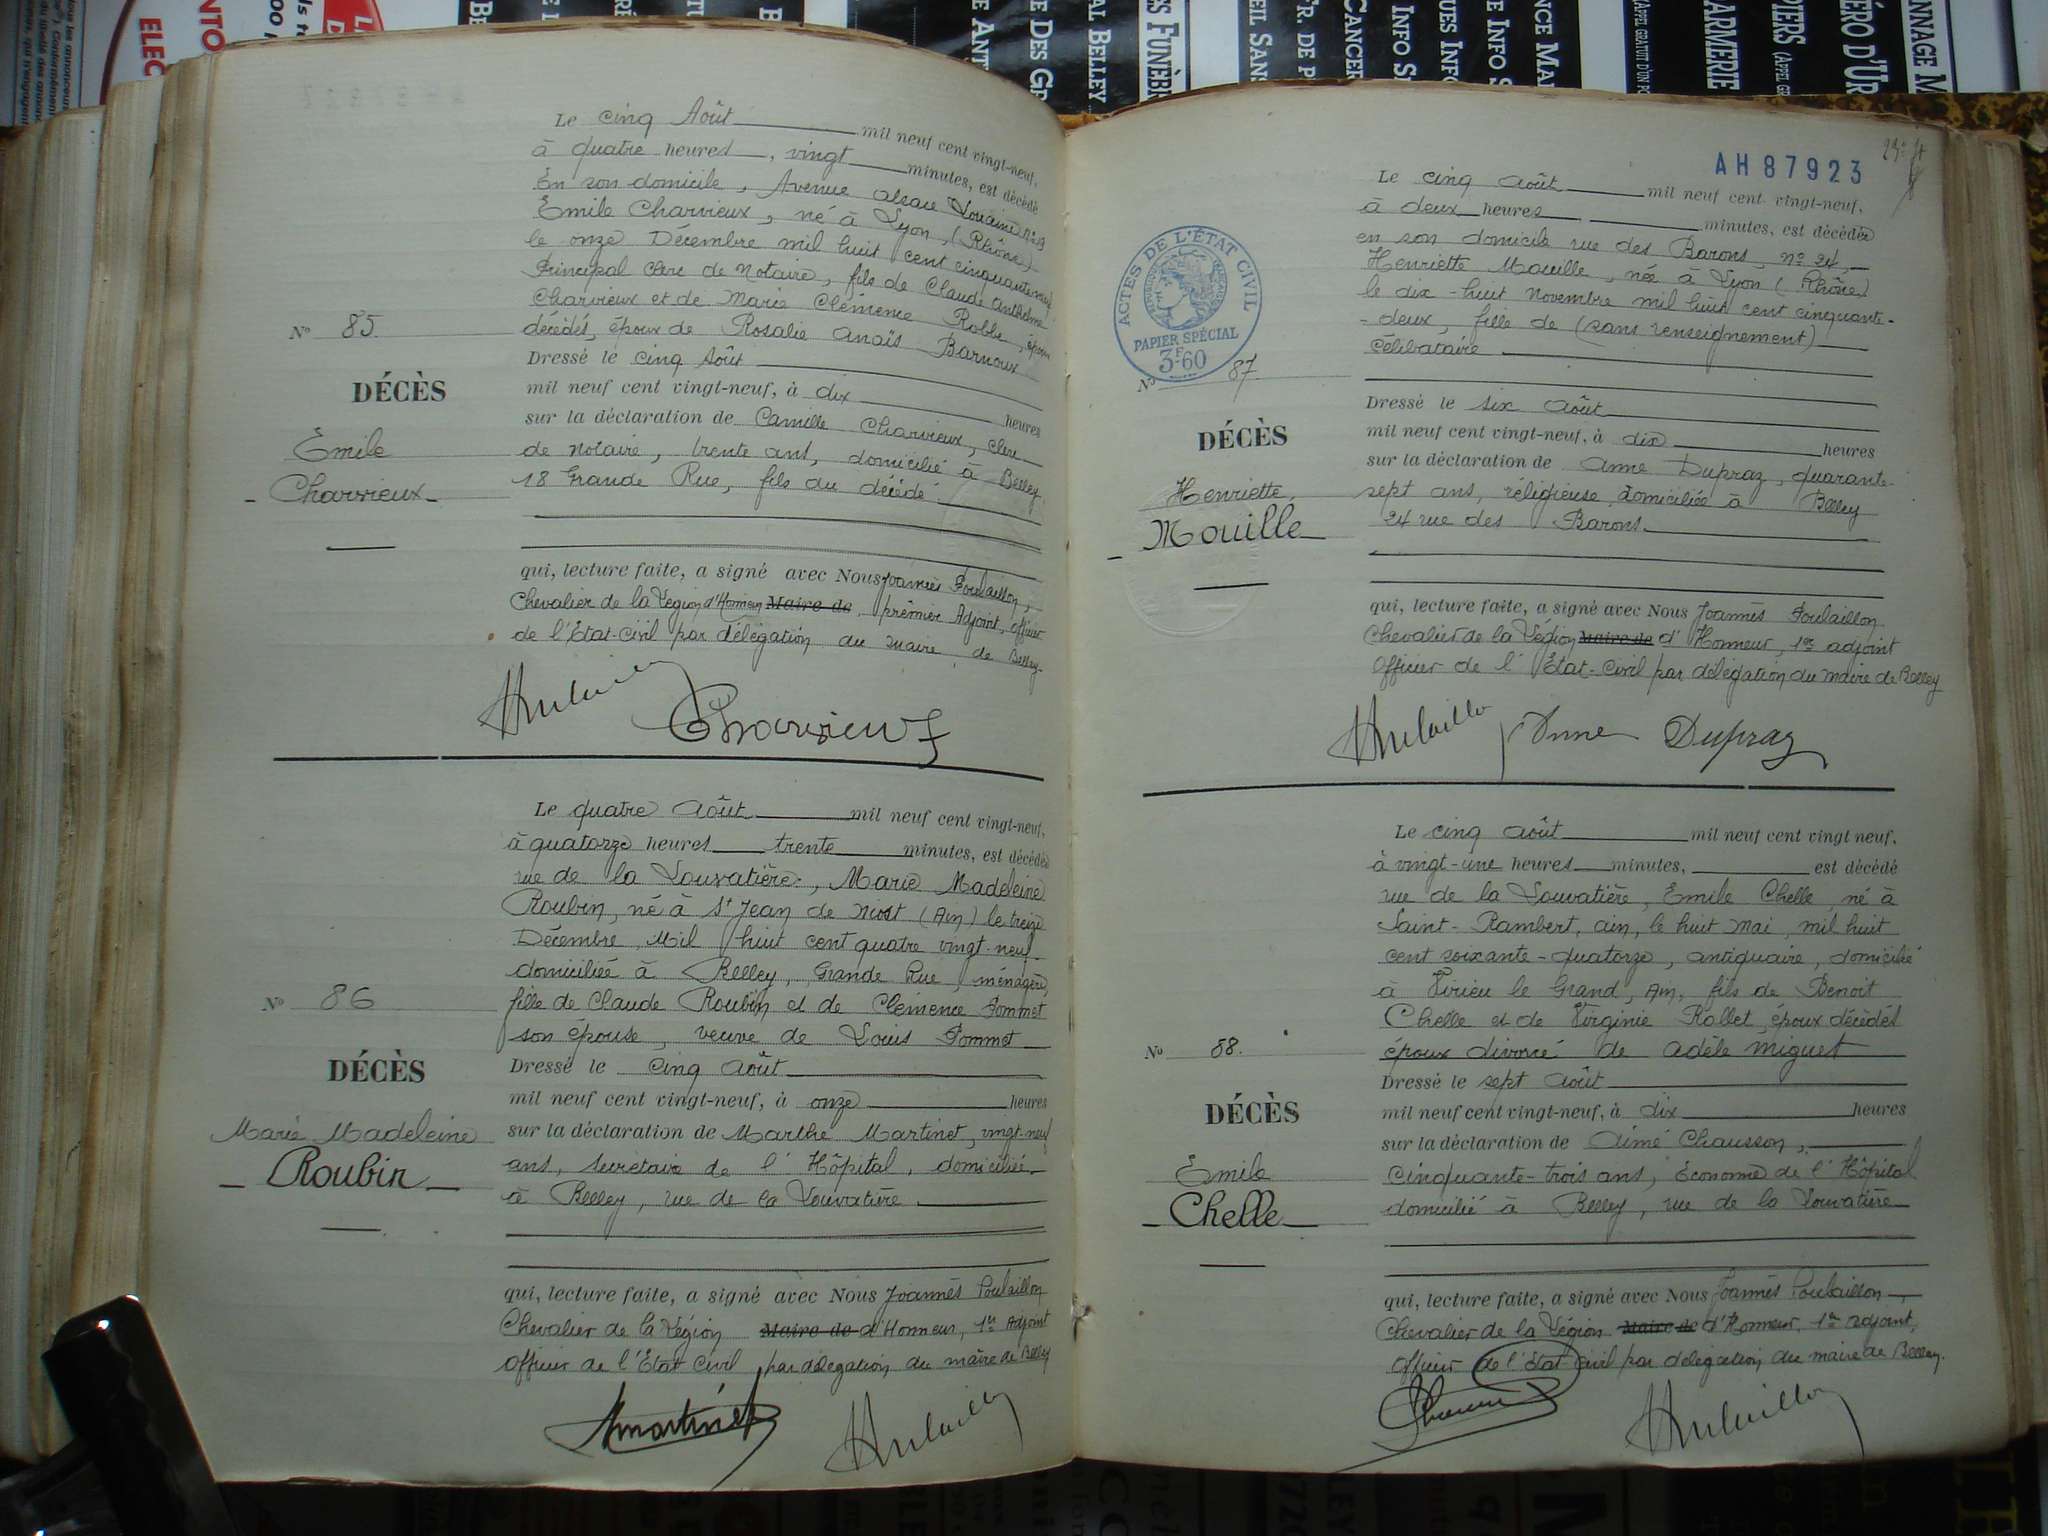 Le cinq Août mil neuf cent vingt-neuf,
à quatre heures, vingt minutes, est décédé
En son domicile, Avenue alsace Lorraine
Emile Charvieux, né à Lyon, (Rhône)
le onze Décembre mil huit cent cinquante-neuf
Principal clerc de Notaire, fils de Claude Anthelme
Charvieux et de Marie Clémence Roble, époux
décédés, époux de Rosalie Anaïs Barnoux
N° 85.
Dressé le cinq Août
DÉCÈS
mil neuf cent vingt-neuf, à dix heures
sur la déclaration de Camille Charvieux, clerc
Emile
de notaire, trente ans, domicilié à Belley
Charvieux
18 Grande Rue, fils du décédé.
qui, lecture faite, a signé avec Nous Joannès Poulaillon,
Chevalier de la Légion d'Honneur Maire de, premier Adjoint, officier
de l'Etat-Civil par délégation du maire de Belley.
Charvieux
Le quatre Août mil neuf cent vingt-neuf,
à quatorze heures trente minutes, est décédée
rue de la Louvatière, Marie Madeleine
Roubin, né à St Jean de Niost (Ain) le treize
Décembre, Mil huit cent quatre vingt-neuf
domiciliée à Belley, Grande Rue, ménagère,
N° 86
fille de Claude Roubin et de Clémence Pommet
son épouse, veuve de Louis Pommet
DÉCÈS
Dressé le cinq Août
mil neuf cent vingt-neuf, à onze heures
Marie Madeleine
sur la déclaration de Marthe Martinet, vingt-neuf
Roubin
ans, secrétaire de l'Hôpital, domiciliée
à Belley, rue de la Louvatière
qui, lecture faite, a signé avec Nous Joannès Poulaillon
Chevalier de la Légion Maire de d'Honneur, 1er Adjoint
officier de l'Etat Civil par délégation du maire de Belley
Martinet
AH87923
Le cinq Août mil neuf cent vingt-neuf,
à deux heures minutes, est décédée
en son domicile rue des Barons, n° 24,
Henriette Mouille, née à Lyon (Rhône)
le dix-huit Novembre mil huit cent cinquante-
-deux, fille de (sans renseignement)
célibataire
ACTES DE L'ÉTAT CIVIL
PAPIER SPÉCIAL
3F60
N° 87
Dressé le six Août
DÉCÈS
mil neuf cent vingt-neuf, à dix heures
sur la déclaration de Anne Dupraz, quarante-
Henriette
sept ans, réligieuse domiciliée à Belley
Mouille
24 rue des Barons
qui, lecture faite, a signé avec Nous Joannès Poulaillon
Chevalier de la Légion Maire de d'Honneur, 1er adjoint
Officier de l'Etat-Civil par délégation du maire de Belley
Anne Dupraz
Le cinq Août mil neuf cent vingt neuf,
à vingt-une heures minutes, est décédé
rue de la Louvatière, Emile Chelle, né à
Saint-Rambert, ain, le huit Mai, mil huit
cent soixante-quatorze, antiquaire, domicilié
à Virieu le Grand, Ain, fils de Benoit
Chelle et de Virginie Rollet, époux décédés
N° 88.
époux divorcé de Adèle Miguet
Dressé le sept Août
DÉCÈS
mil neuf cent vingt-neuf, à dix heures
sur la déclaration de Aimé Chausson,
Emile
cinquante-trois ans, Econome de l'Hôpital
Chelle
domicilié à Belley, rue de la Louvatière
qui, lecture faite, a signé avec Nous Joannès Poulaillon,
Chevalier de la Légion Maire de d'Honneur, 1er adjoint,
Officier de l'Etat Civil par délégation du maire de Belley.